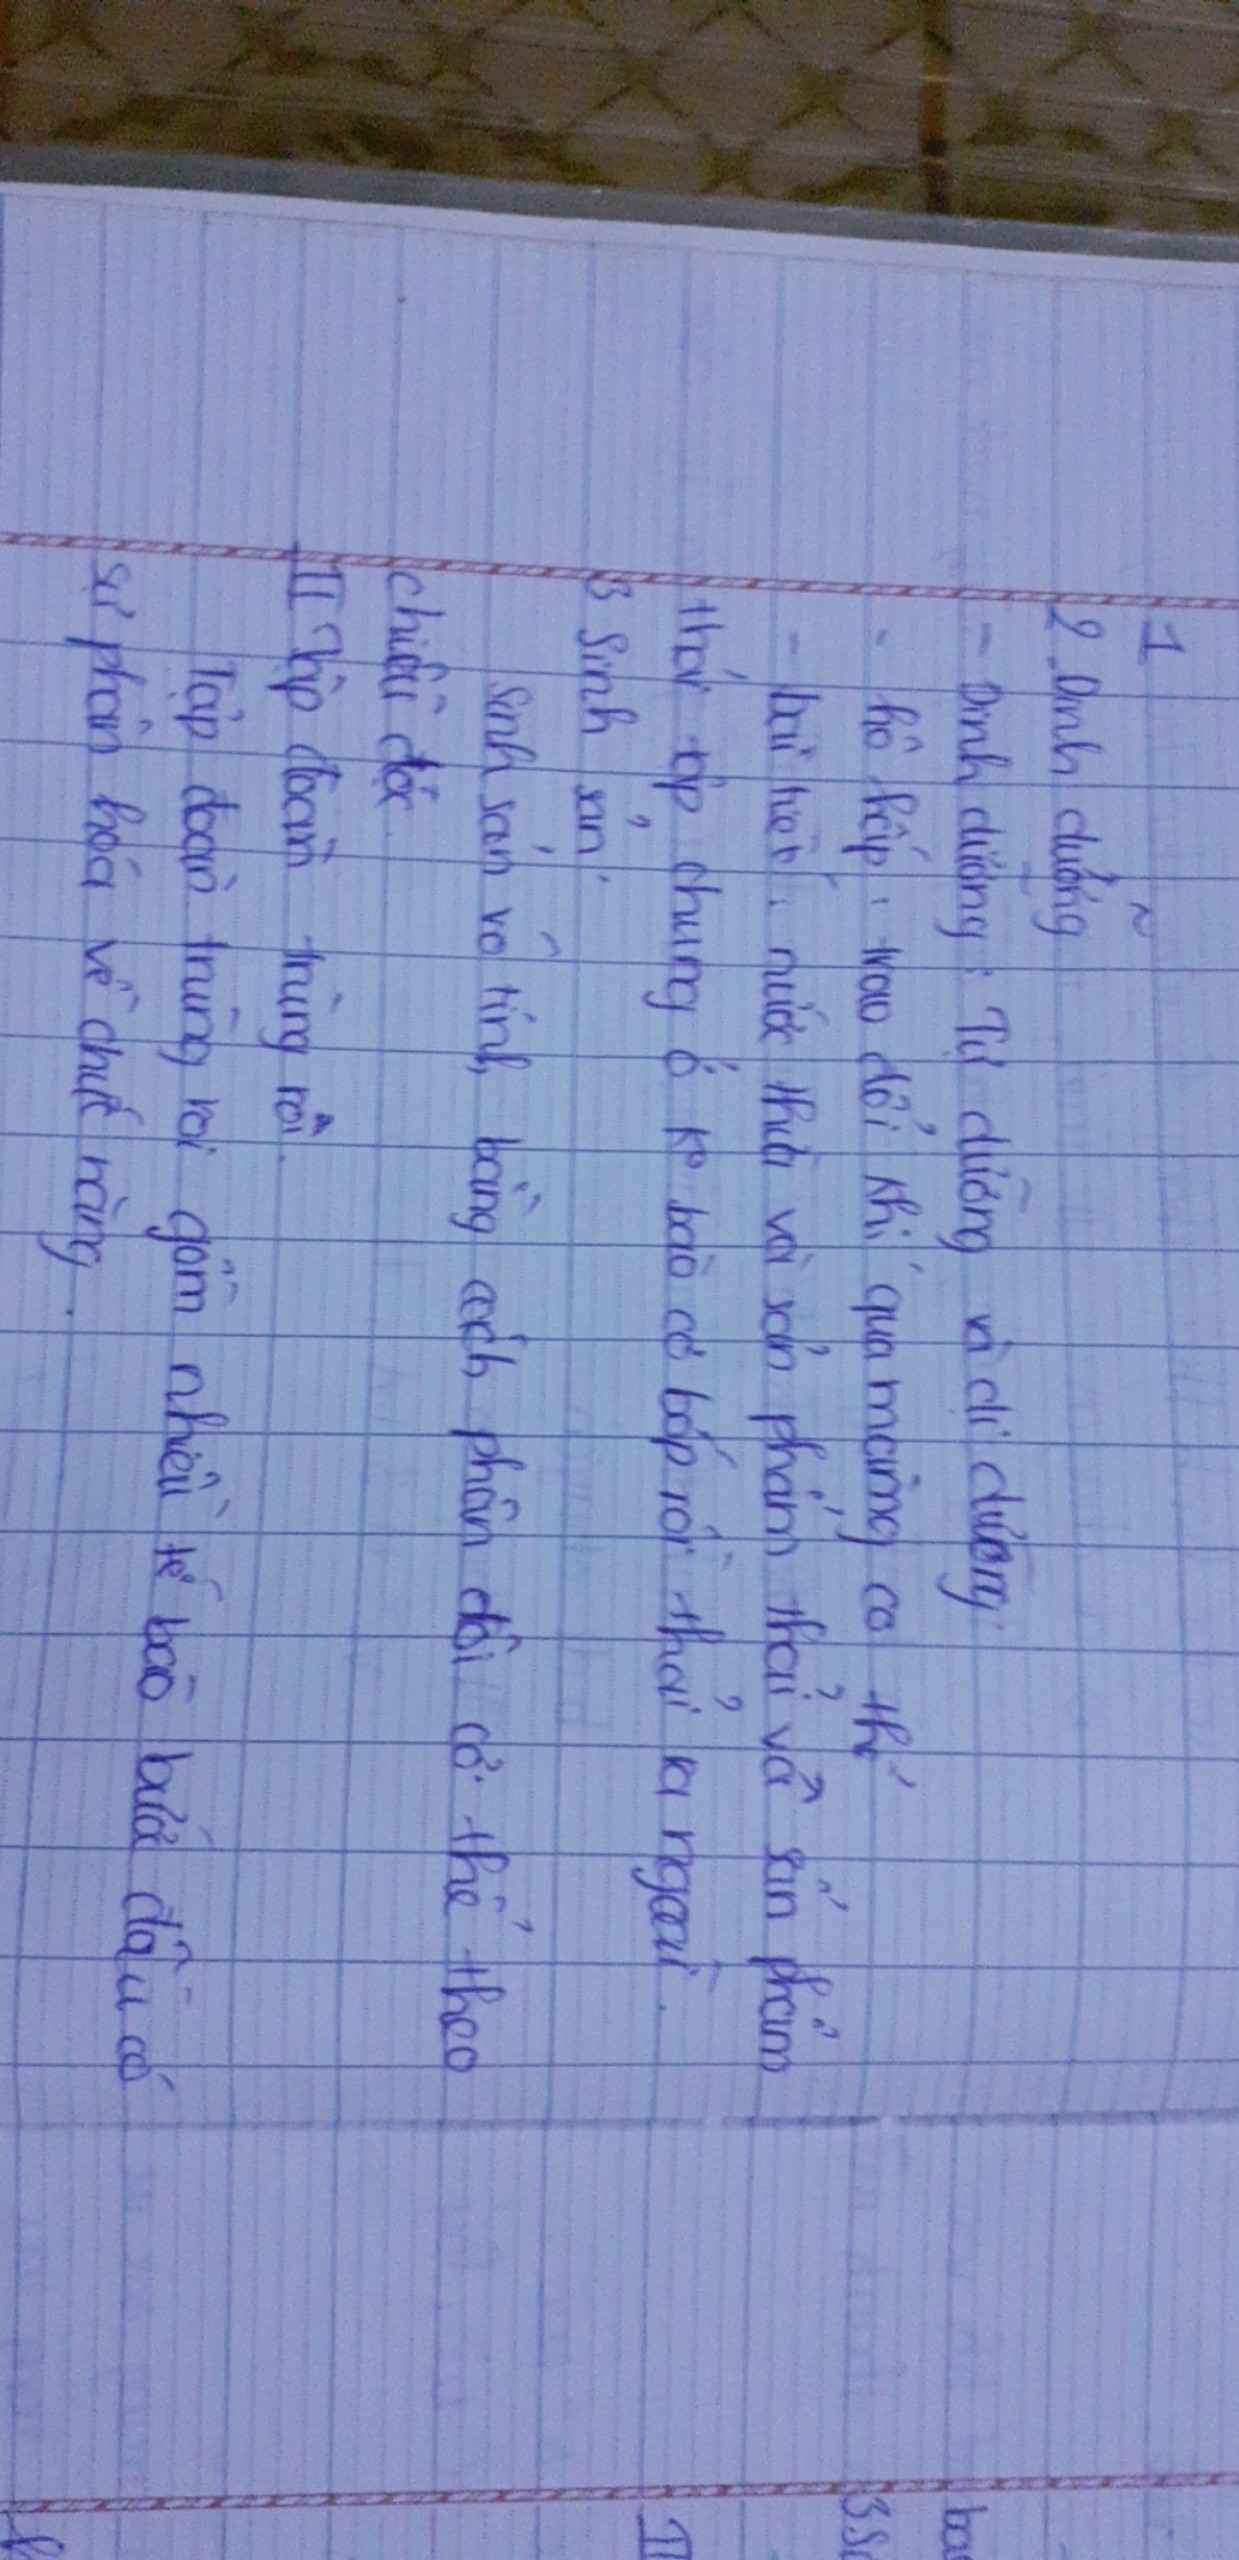 1
2 Dinh dưỡng
- Dinh dưỡng: Tự dưỡng và dị dưỡng
- hô hấp: trao đổi khí qua màng cơ thể
- bài tiết: nước thừa và sản phẩm thải và sản phẩm
thải tập chung ở k° bào co bóp rồi thải ra ngoài.
3 Sinh sản.
Sinh sản vô tính bằng cách phân đôi cơ thể theo
chiều dọc.
II Tập đoàn trùng roi.
Tập đoàn trùng roi gồm nhiều tế bào bước đầu có
sự phân hóa về chức năng.
3. Si
II